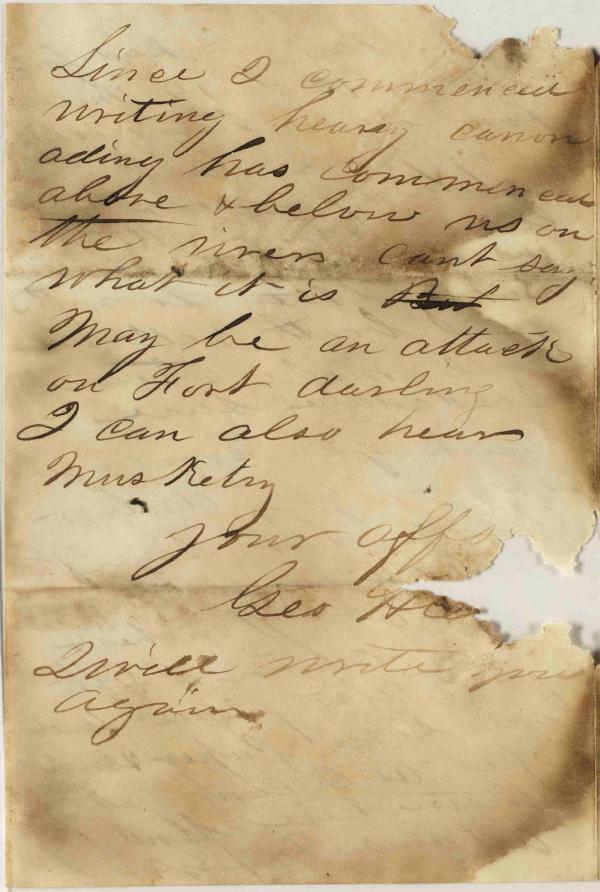 Since I commenced
writing heavy canon
ading has commenced
above & below us on
the rivers cant say
what it is But
May be an attack
on Fort darling
I can also hear
Musketry
your affs
Geo
I will write you
again